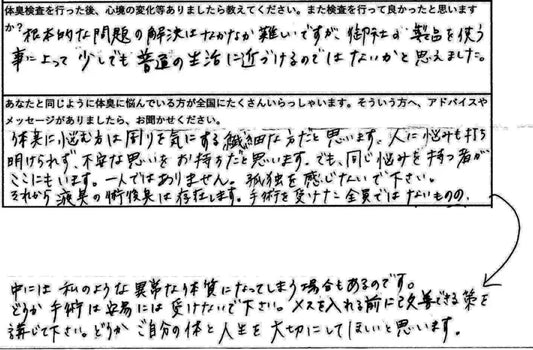 体臭検査を行った後、心境の変化等ありましたら教えてください。また検査を行って良かったと思います
か？根本的な問題の解決はなかなか難しいですが、御社の製品を使う
事によって少しでも普通の生活に近づけるのではないかと思えました。
あなたと同じように体臭に悩んでいる方が全国にたくさんいらっしゃいます。そういう方へ、アドバイスや
メッセージがありましたら、お聞かせください。
体臭に悩む方は周りを気にする繊細な方だと思います。人に悩みも打ち
明けられず、不安な思いをお持ちだと思います。でも、同じ悩みを持つ者が
ここにもいます。一人ではありません。孤独を感じないで下さい。
それから腋臭の術後臭は存在します。手術を受けた全員ではないものの、
中には私のような異常な体質になってしまう場合もあるのです。
どうか手術は安易には受けないで下さい。メスを入れる前に改善できる策を
講じて下さい。どうかご自分の体と人生を大切にしてほしいと思います。